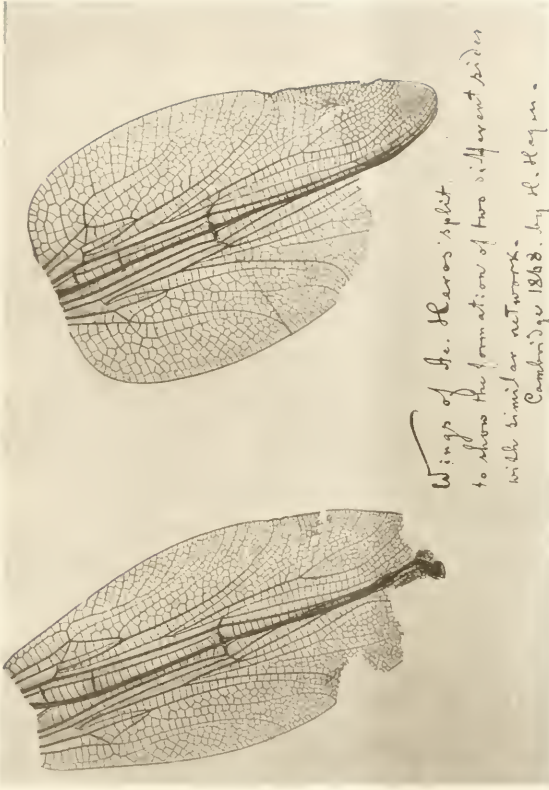 Wings of Ae. Heros split
to show the formation of two different sides
with similar network.
Cambridge 1868. by H. Hagen.